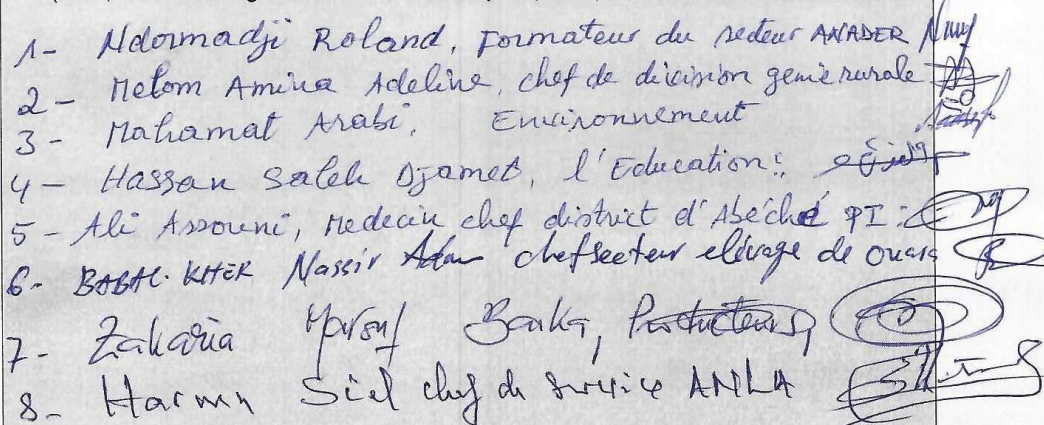 1- Ndormadji Roland, Formateur du secteur ANADER
2- Melom Amina Adeline, chef de division genie rurale
3- Mahamat Arabi, Environnement
4- Hassan Saleh Djamet, l'Education:
5- Ali Assouni, Medecin chef district d'Abéché PI:
6- BABAL-KHER Nassir Adam chef secteur elévage de Ouara
7- Zakaria Yousouf Barka, Producteurs
8- Haroun Siel chef de service ANLA